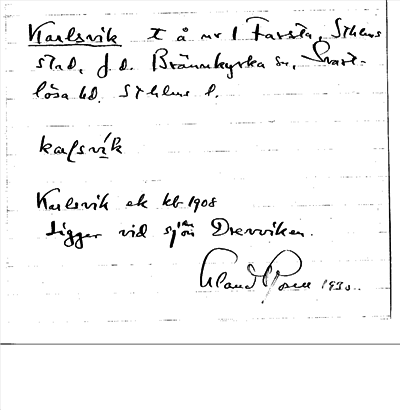 Karlsvik t å nr 1 Farsta, Sthlms
stad, f.d. Brännkyrka sn, Svart-
lösa hd. Sthlms l.
kaḷsvík
Karlsvik ek kb 1908
Ligger vid sjön Drevviken.
1930.